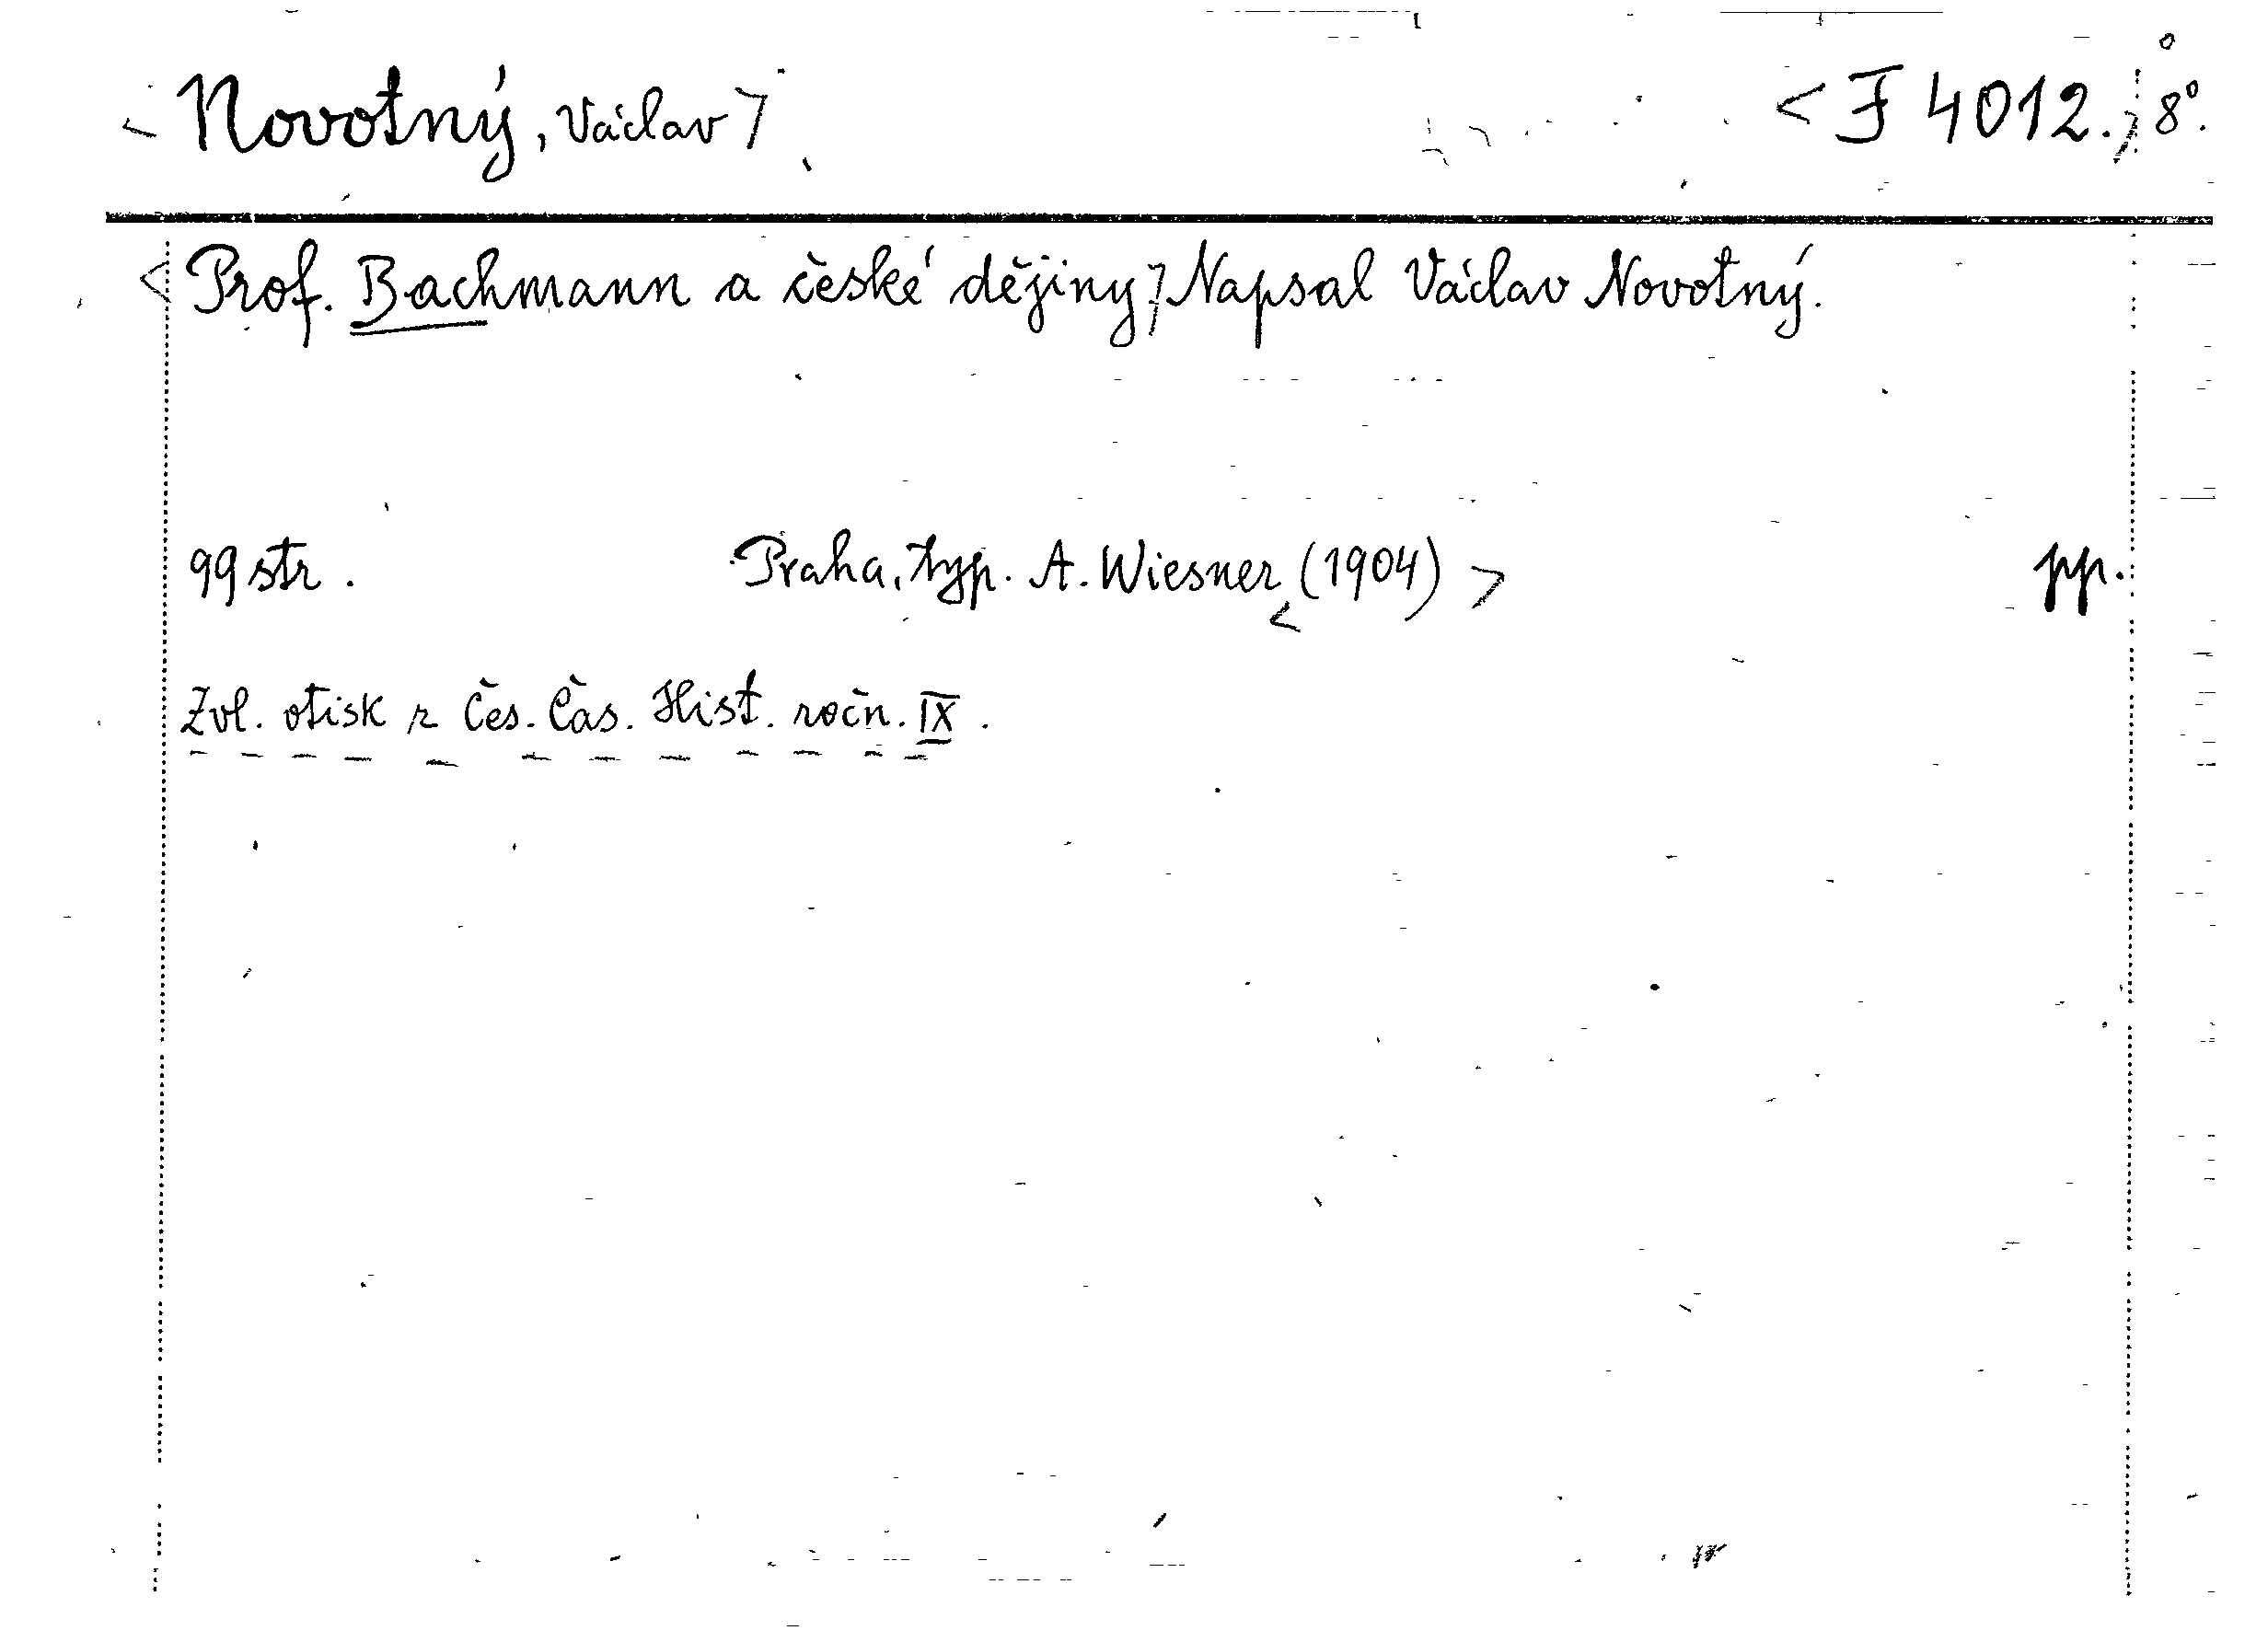 <Novotný, Václav> <F 4012.> 8°.
<Prof. Bachmann a české dějiny> Napsal Václav Novotný.
99 str. Praha, typ. A. Wiesner <(1904)> pp.
Zvl. otisk z Čes. Čas. Hist. ročn. IX.